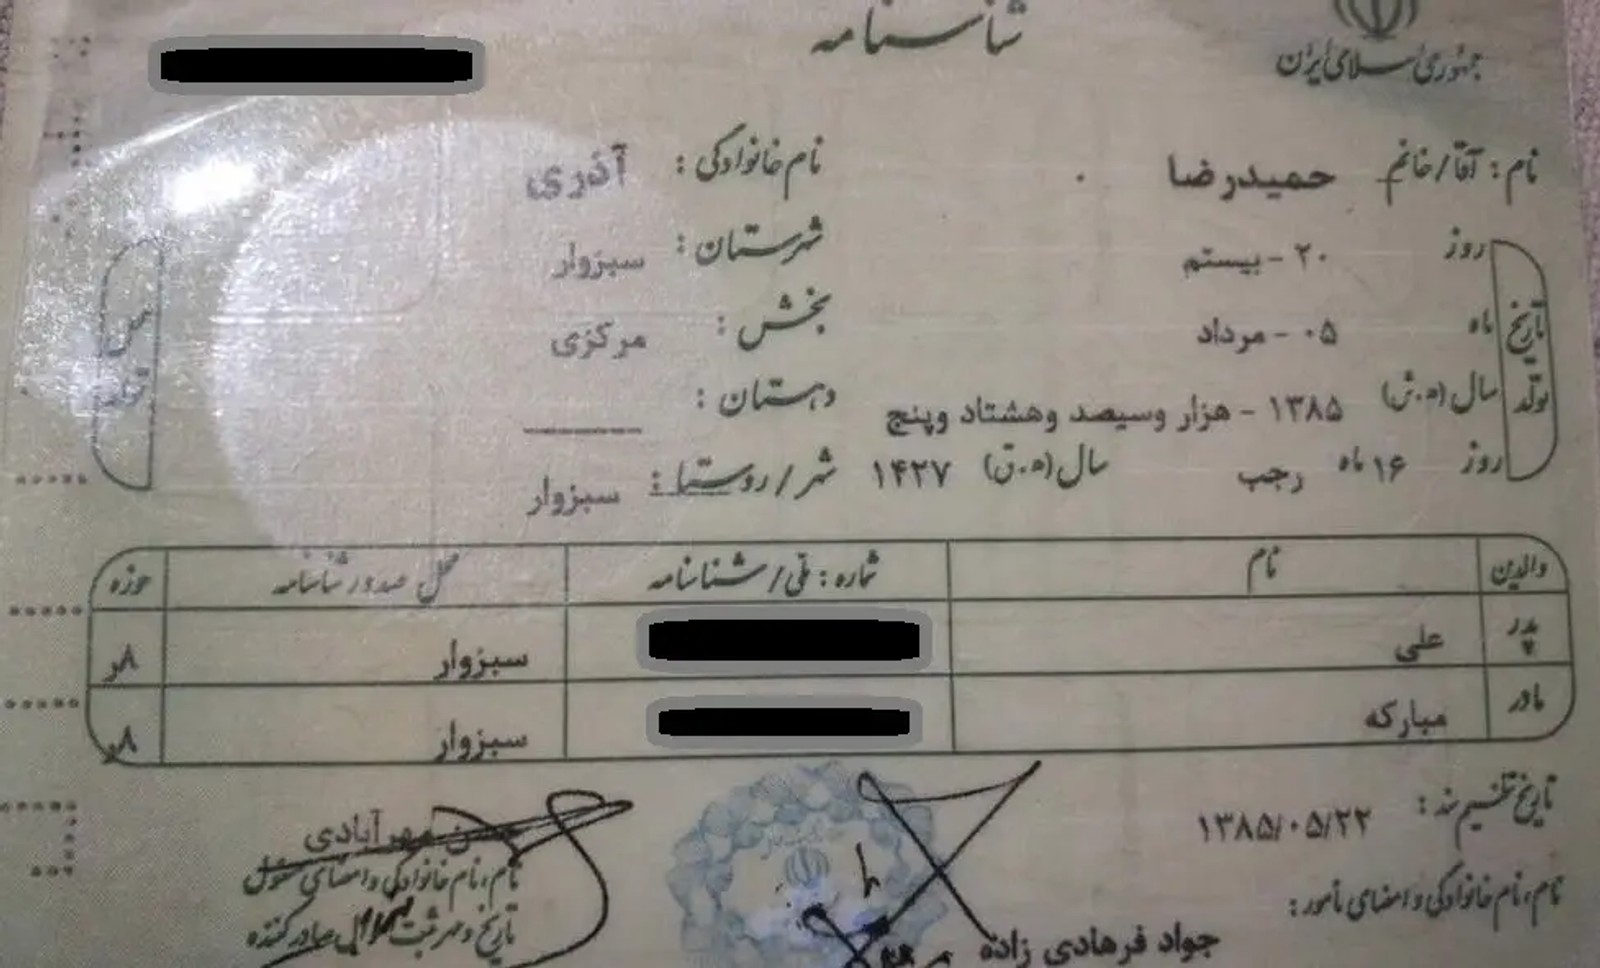 شناسنامه
جمهوری اسلامی ایران
نام : آقا/خانم حمیدرضا نام خانوادگی : آذری
روز ۲۰ - بیستم شهرستان : سبزوار
ماه ۰۵ - مرداد بخش : مرکزی
سال (ه.ش) ۱۳۸۵ - هزار وسیصد وهشتاد وپنج دهستان : ----------
روز ۱۶ ماه رجب سال (ه.ق) ۱۴۲۷ شهر/روستا : سبزوار
تاریخ تولد
محل تولد
والدین نام شماره : ملی/شناسنامه محل صدور شناسنامه حوزه
پدر علی سبزوار ۸ر
مادر مبارکه سبزوار ۸ر
تاریخ تنظیم سند : ۱۳۸۵/۰۵/۲۲
نام، نام خانوادگی و امضای مأمور :
جواد فرهادی زاده
مهرآبادی
نام، نام خانوادگی و امضای مسئول
تاریخ و مهر ثبت احوال صادرکننده